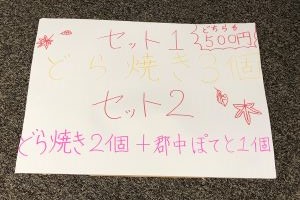 セット1 どちらも 500円
どら焼き3個
セット2
どら焼き2個+郡中ぽてと1個